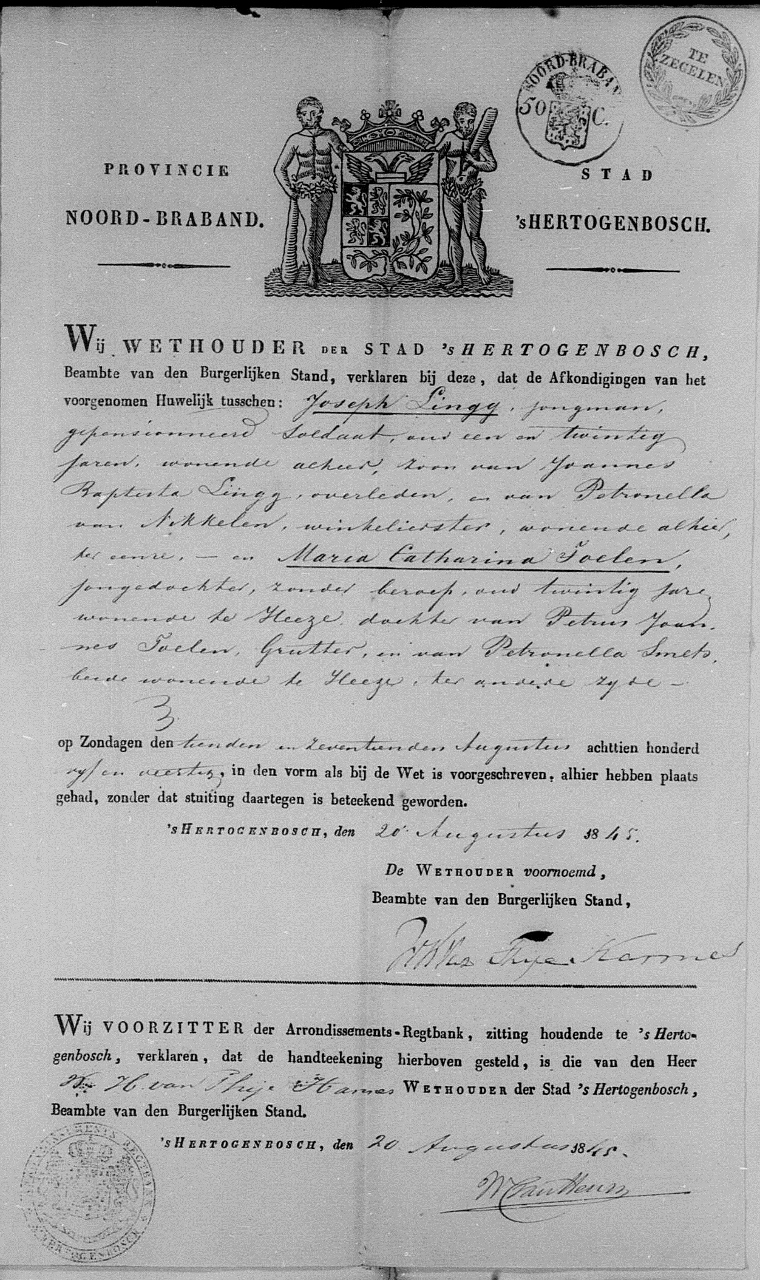 TE
ZEGELEN
NOORD-BRABAN
50 C.
PROVINCIE
NOORD-BRABAND.
STAD
'sHERTOGENBOSCH.
Wij WETHOUDER DER STAD 'sHERTOGENBOSCH,
Beambte van den Burgerlijken Stand, verklaren bij deze, dat de Afkondigingen van het
voorgenomen Huwelijk tusschen: Joseph Lingg, jongman,
gepensionneerd soldaat, oud een en twintig
jaren, wonende alhier, zoon van Joannes
Baptista Lingg, overleden, en van Petronella
van Nikkelen, winkelierster, wonende alhier,
ter eenre, — en Maria Catharina Toelen,
jongedochter, zonder beroep, oud twintig jare
wonende te Heeze, dochter van Petrus Joan-
nes Toelen, Grutter, en van Petronella Smets,
beide wonende te Heeze, ter andere zyde —
op Zondagen den tienden en zeventienden Augustus achttien honderd
vyf en veertig, in den vorm als bij de Wet is voorgeschreven, alhier hebben plaats
gehad, zonder dat stuiting daartegen is beteekend geworden.
'sHERTOGENBOSCH, den 20 Augustus 1845.
De WETHOUDER voornoemd,
Beambte van den Burgerlijken Stand,
Wij VOORZITTER der Arrondissements-Regtbank, zitting houdende te 's Herto-
genbosch, verklaren, dat de handteekening hierboven gesteld, is die van den Heer
H. van WETHOUDER der Stad 's Hertogenbosch,
Beambte van den Burgerlijken Stand.
'sHERTOGENBOSCH, den 20 Augustus 1845.
ARRONDISSEMENTS REGTBANK
'S HERTOGENBOSCH